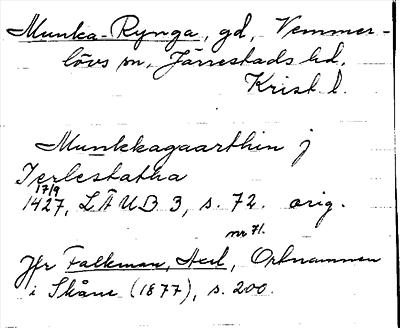 Munka-Rynga, gd, Vemmer-
lövs sn, Järrestads hd,
Krist. l.
Munkkagaarthin j
Jerlestatha
17/9
1427, LÄUB 3, s. 72. orig.
nr 71.
Jfr Falkman, Ortnamnen
i Skåne (1877), s. 200.